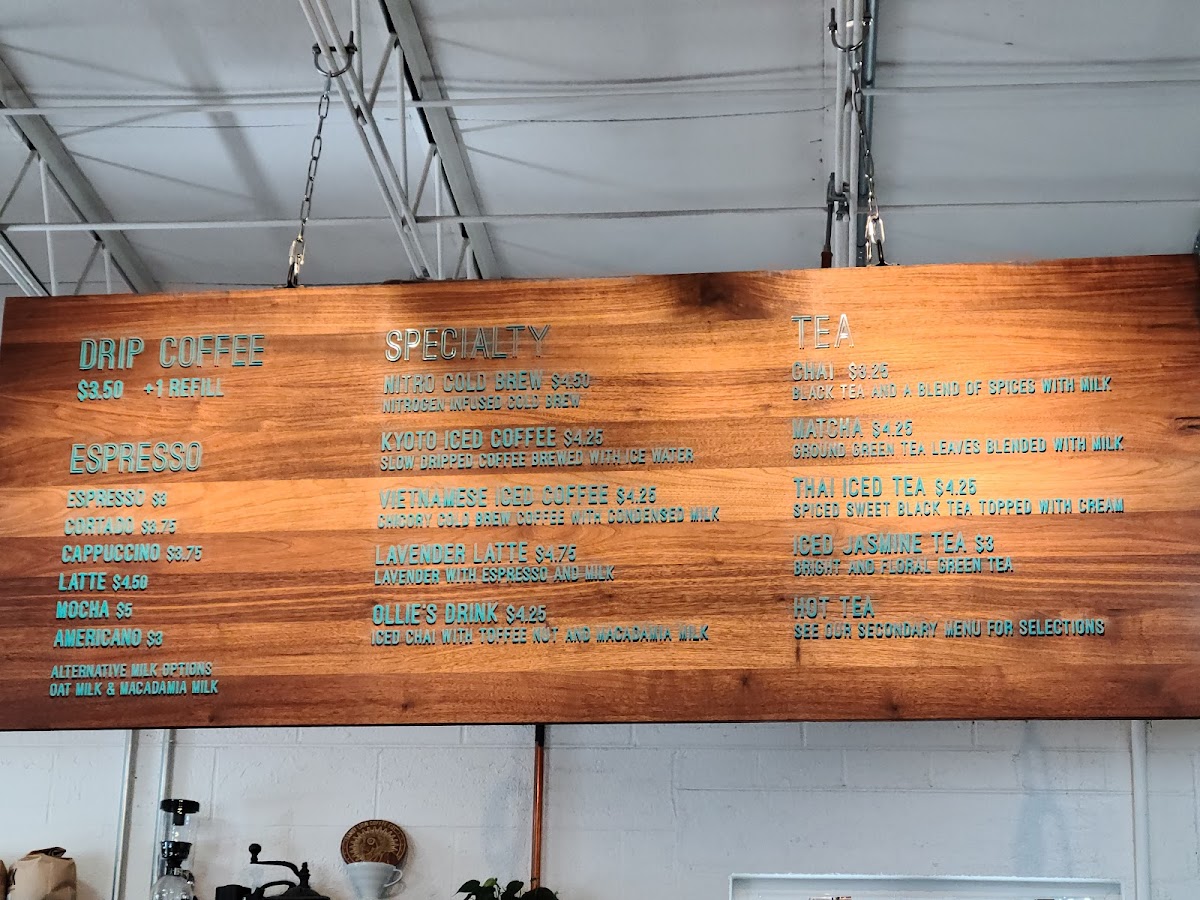 DRIP COFFEE
$3.50 +1 REFILL
ESPRESSO
ESPRESSO $3
CORTADO $3.75
CAPPUCCINO $3.75
LATTE $4.50
MOCHA $5
AMERICANO $3
ALTERNATIVE MILK OPTIONS
OAT MILK & MACADAMIA MILK
SPECIALTY
NITRO COLD BREW $4.50
NITROGEN INFUSED COLD BREW
KYOTO ICED COFFEE $4.25
SLOW DRIPPED COFFEE BREWED WITH ICE WATER
VIETNAMESE ICED COFFEE $4.25
CHICORY COLD BREW COFFEE WITH CONDENSED MILK
LAVENDER LATTE $4.75
LAVENDER WITH ESPRESSO AND MILK
OLLIE'S DRINK $4.25
ICED CHAI WITH TOFFEE NUT AND MACADAMIA MILK
TEA
CHAI $3.25
BLACK TEA AND A BLEND OF SPICES WITH MILK
MATCHA $4.25
GROUND GREEN TEA LEAVES BLENDED WITH MILK
THAI ICED TEA $4.25
SPICED SWEET BLACK TEA TOPPED WITH CREAM
ICED JASMINE TEA $3
BRIGHT AND FLORAL GREEN TEA
HOT TEA
SEE OUR SECONDARY MENU FOR SELECTIONS